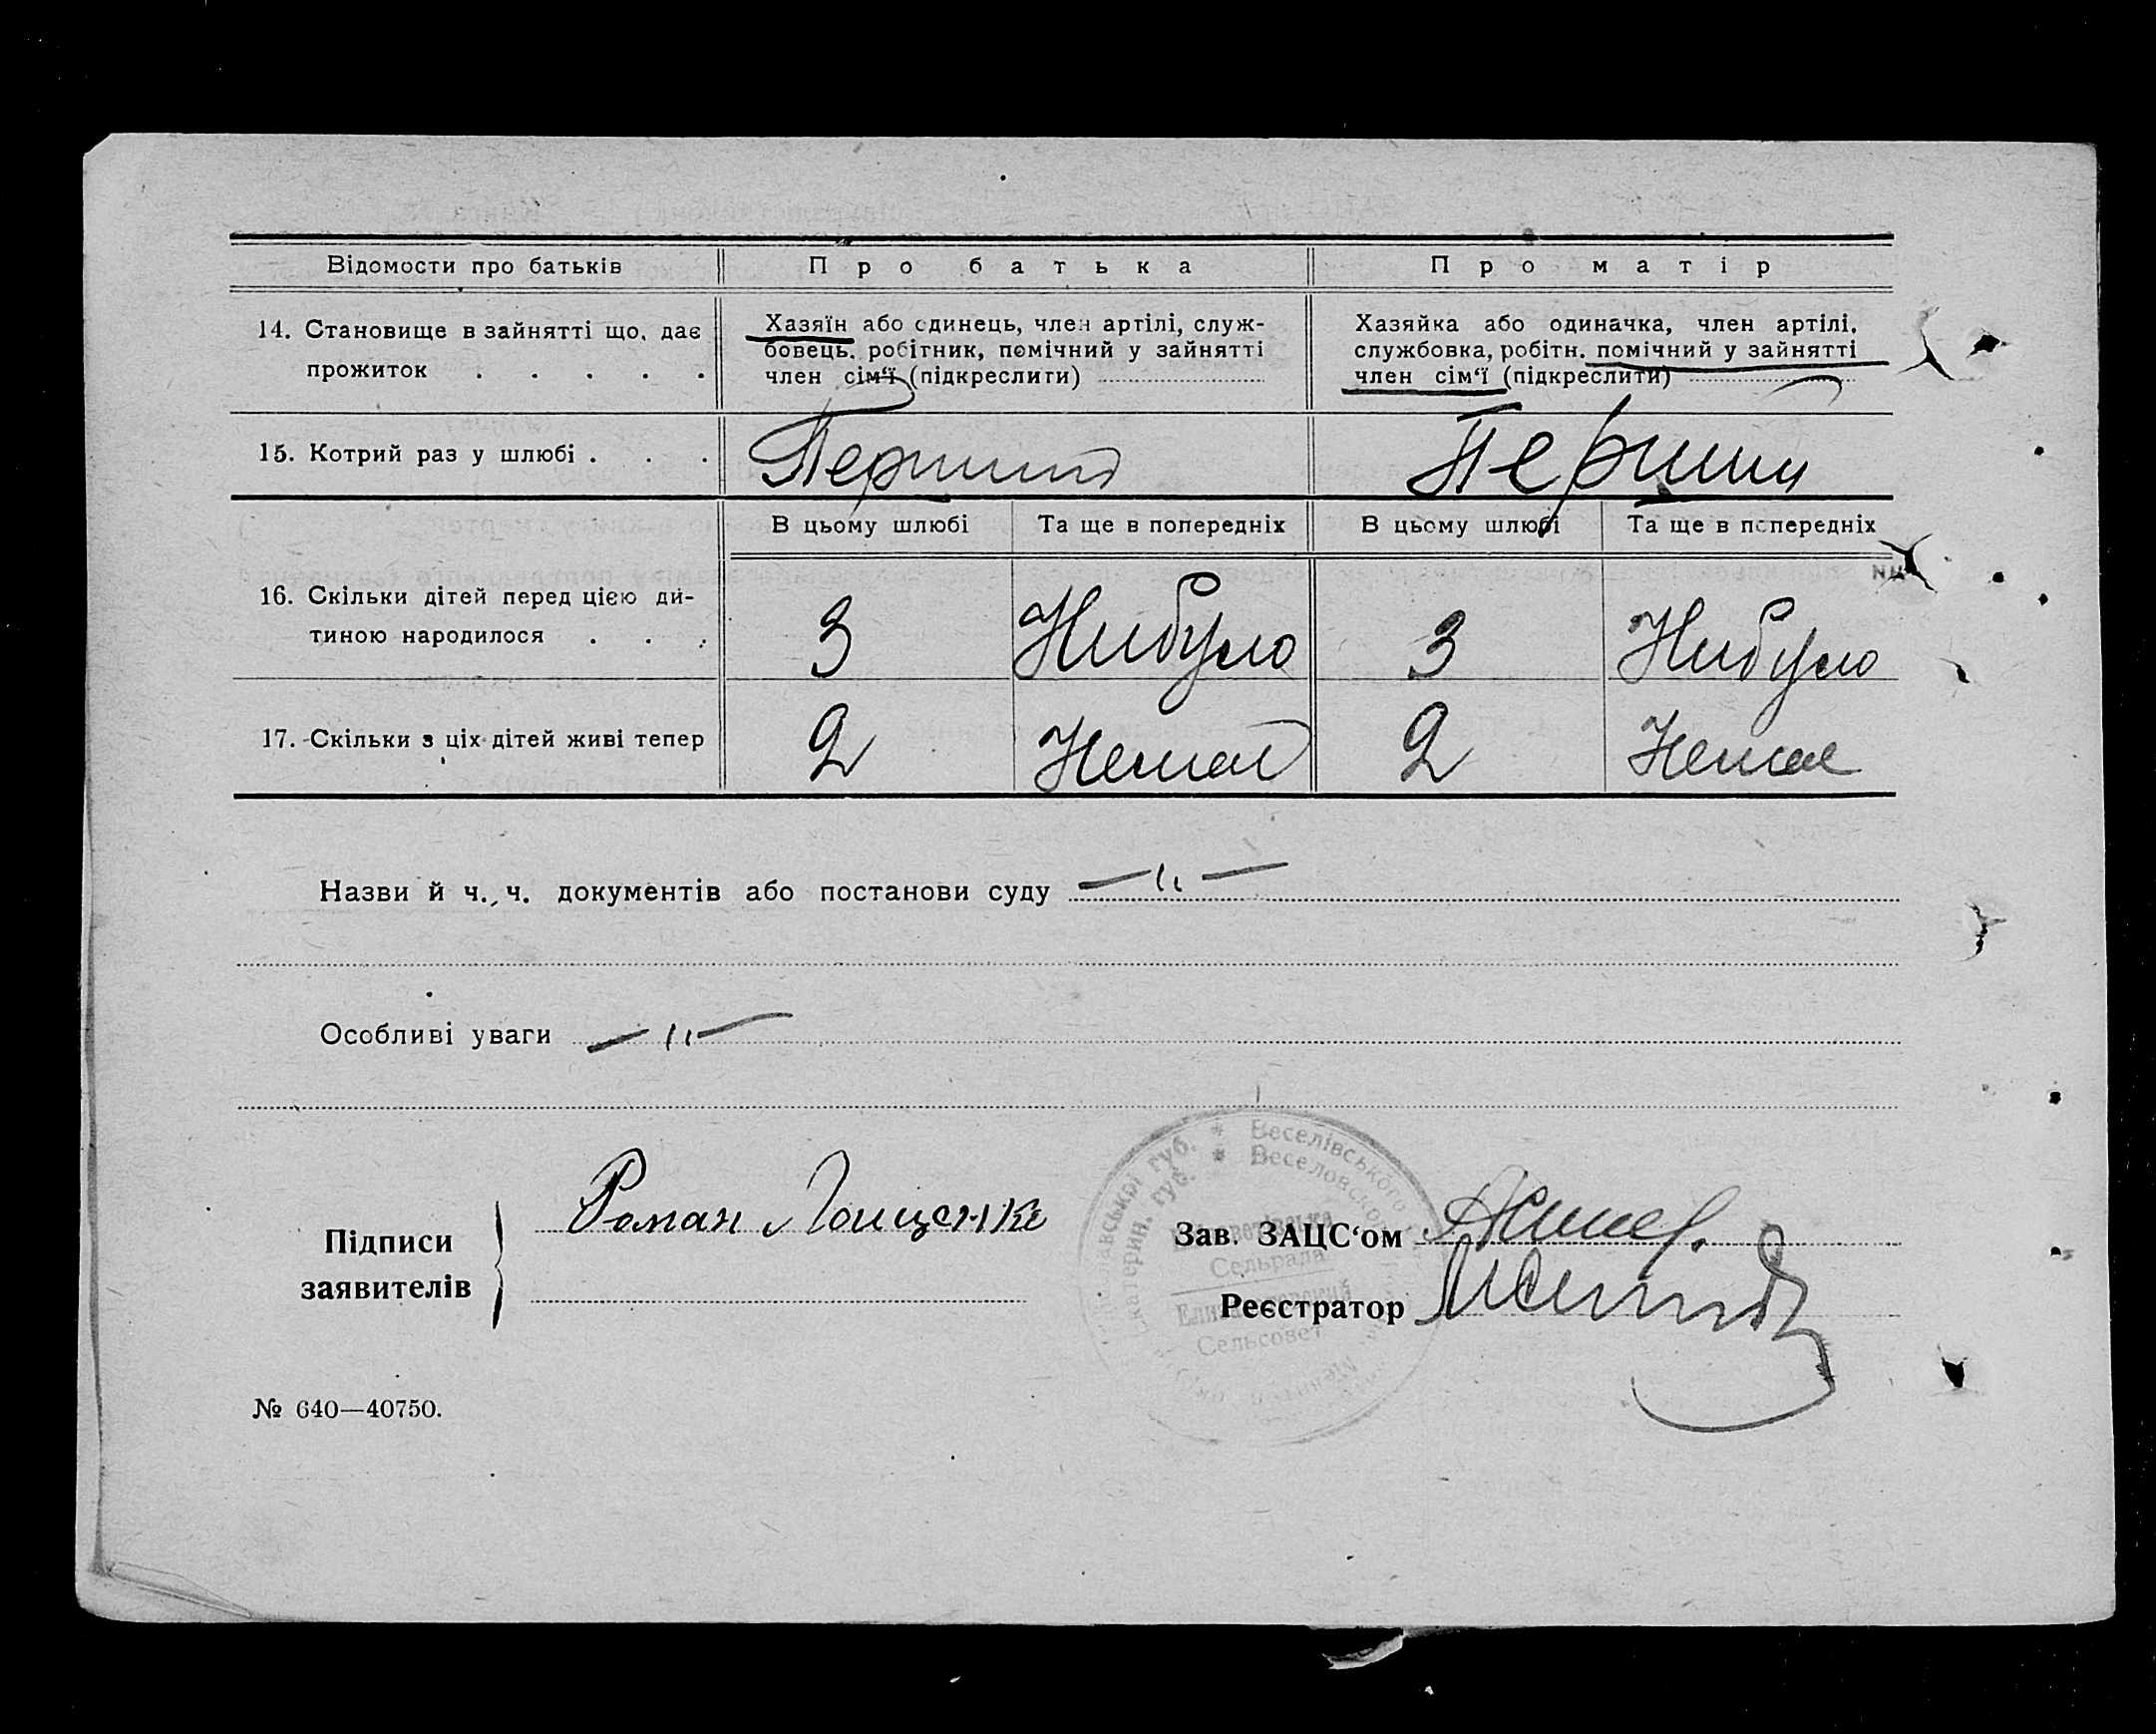 Відомости про батьків Про батька Про матір
14. Становище в зайнятті що, дає
прожиток . . . . .
Хазяїн або одинець, член артілі, служ-
бовець, робітник, помічний у зайнятті
член сім‘ї (підкреслити)
Хазяйка або одиначка, член артілі,
службовка, робітн. помічний у зайнятті
член сім‘ї (підкреслити)
15. Котрий раз у шлюбі . . . Перший Перший
В цьому шлюбі Та ще в попередніх В цьому шлюбі Та ще в попередніх
16. Скільки дітей перед цією ди-
тиною народилося . . .
3 Нибуло 3 Нибуло
17. Скільки з ціх дітей живі тепер 2 Немае 2 Немае
Назви й ч. ч. документів або постанови суду — ıı —
Особливі уваги — ıı —
Підписи
заявителів
Роман
Зав. ЗАЦС‘ом
Реєстратор
губ. * Веселівського
Екатерин. губ. * Веселовского
Сельрада
Сельсовет
№ 640—40750.